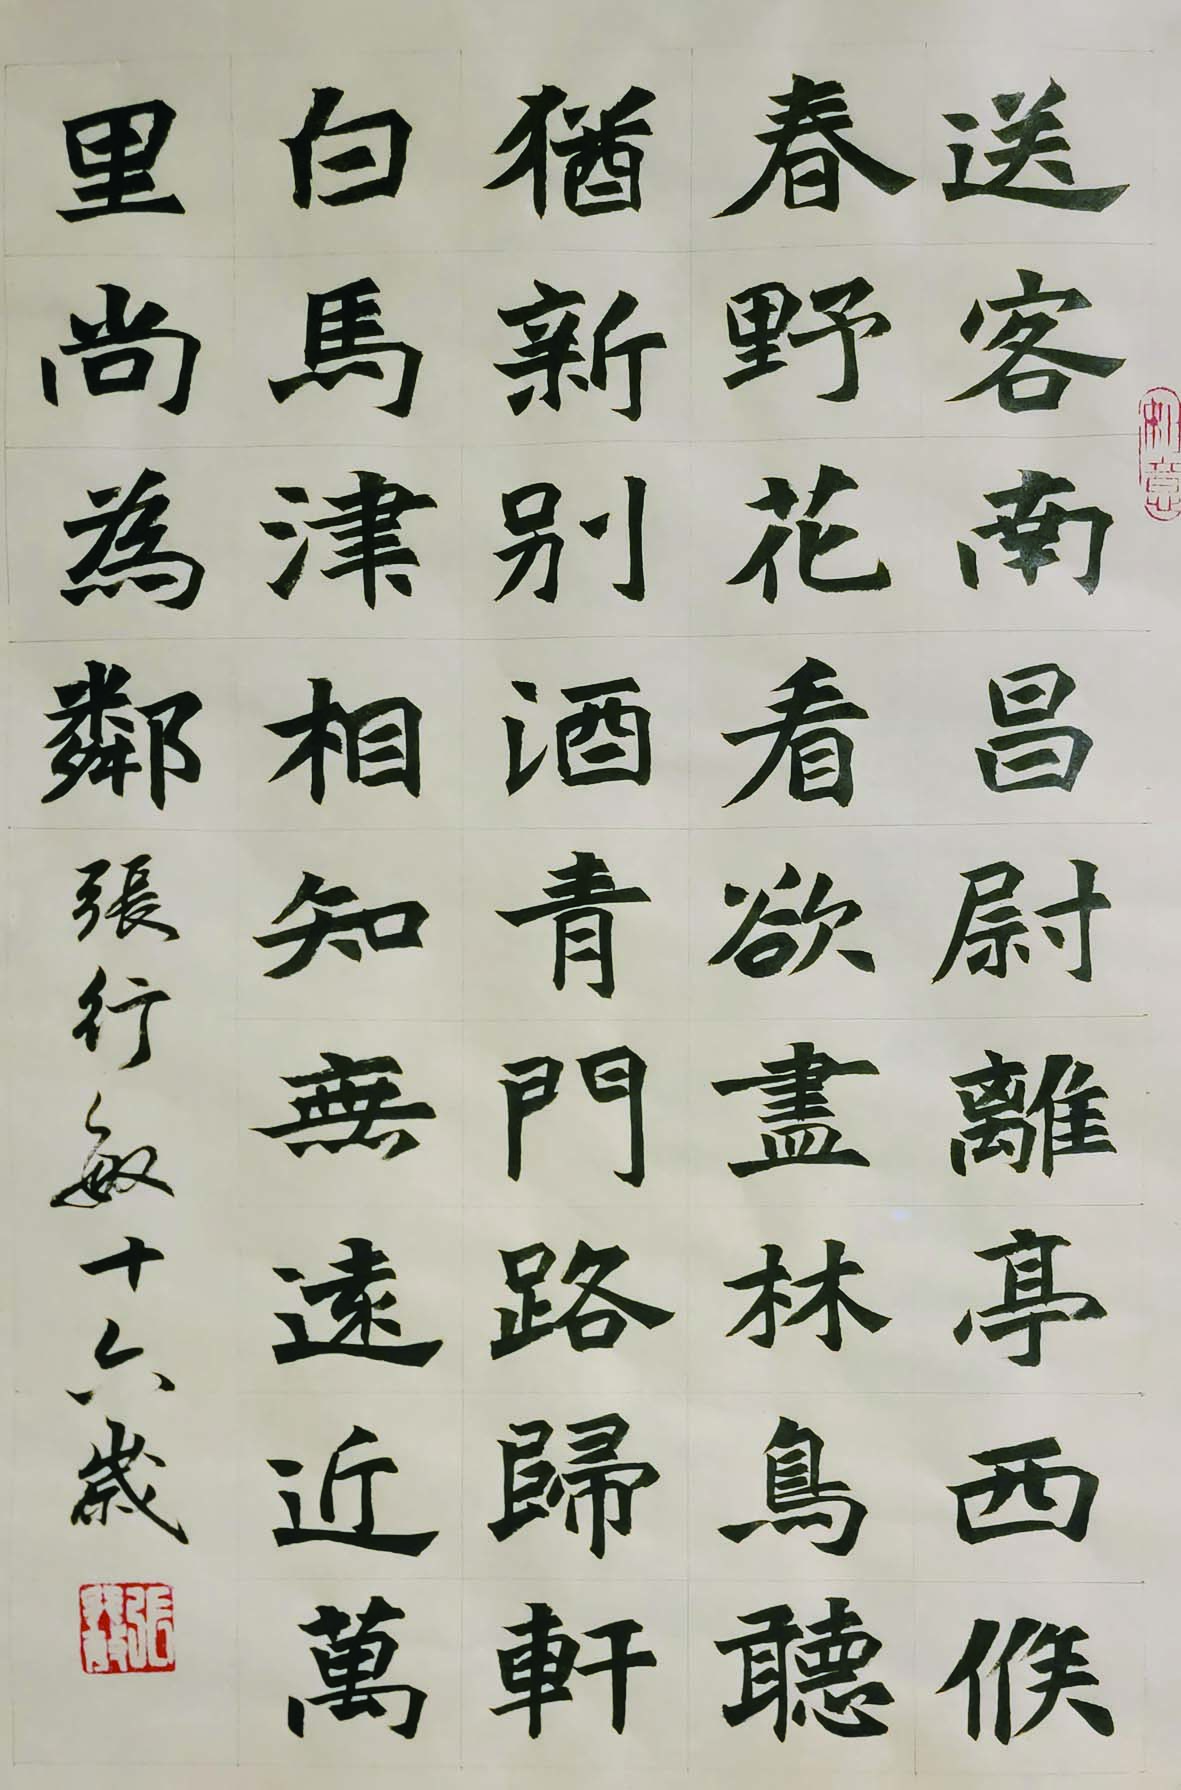 送客南昌尉離亭西候
春野花看欲盡林鳥聽
猶新别酒青門路歸軒
白馬津相知無遠近萬
里尚為鄰
張行敏十六歲